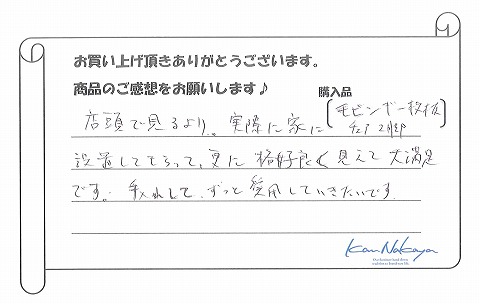 お買い上げ頂きありがとうございます。
商品のご感想をお願いします♪
購入品
モビンギー一枚板
チェア 2脚
店頭で見るより。実際に家に
設置してもらって、更に格好良く見えて大満足
です。手入れして、ずっと愛用していきたいです。
Kan Nakaya